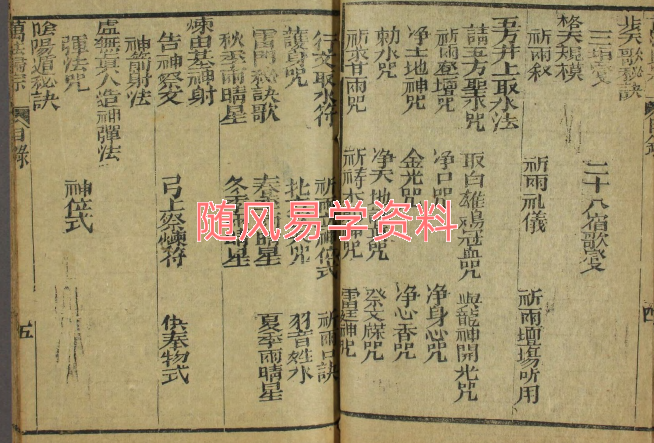 步天歌秘訣
三垣變 二十八宿歌變
格天規模
祈雨秘 祈雨禮儀 祈雨壇塲所用
五方井上取水法
請五方聖水咒 取白雄鷄冠血咒 與龍神開光咒
祈雨登壇咒 净口咒 净身心咒
净土地神咒 金光咒 净心香咒
勅水咒 净天地咒 祭文牒咒
祈求甘雨咒 祈禱 神咒 雷霆神咒
行文取水符 祈 神位式 祈雨口訣
護身咒 北 咒 羽音姓水
雷門秘訣歌 春 雨晴星 夏季雨晴星
秋季雨晴星 冬季 星
煉由基神射
告神祭文 弓上祭煉符 供奉物式
神箭射法
虛無真人造神彈法
彈法咒 神位式
陰陽遁秘訣
萬法歸宗 目錄 五
四
随风易学资料